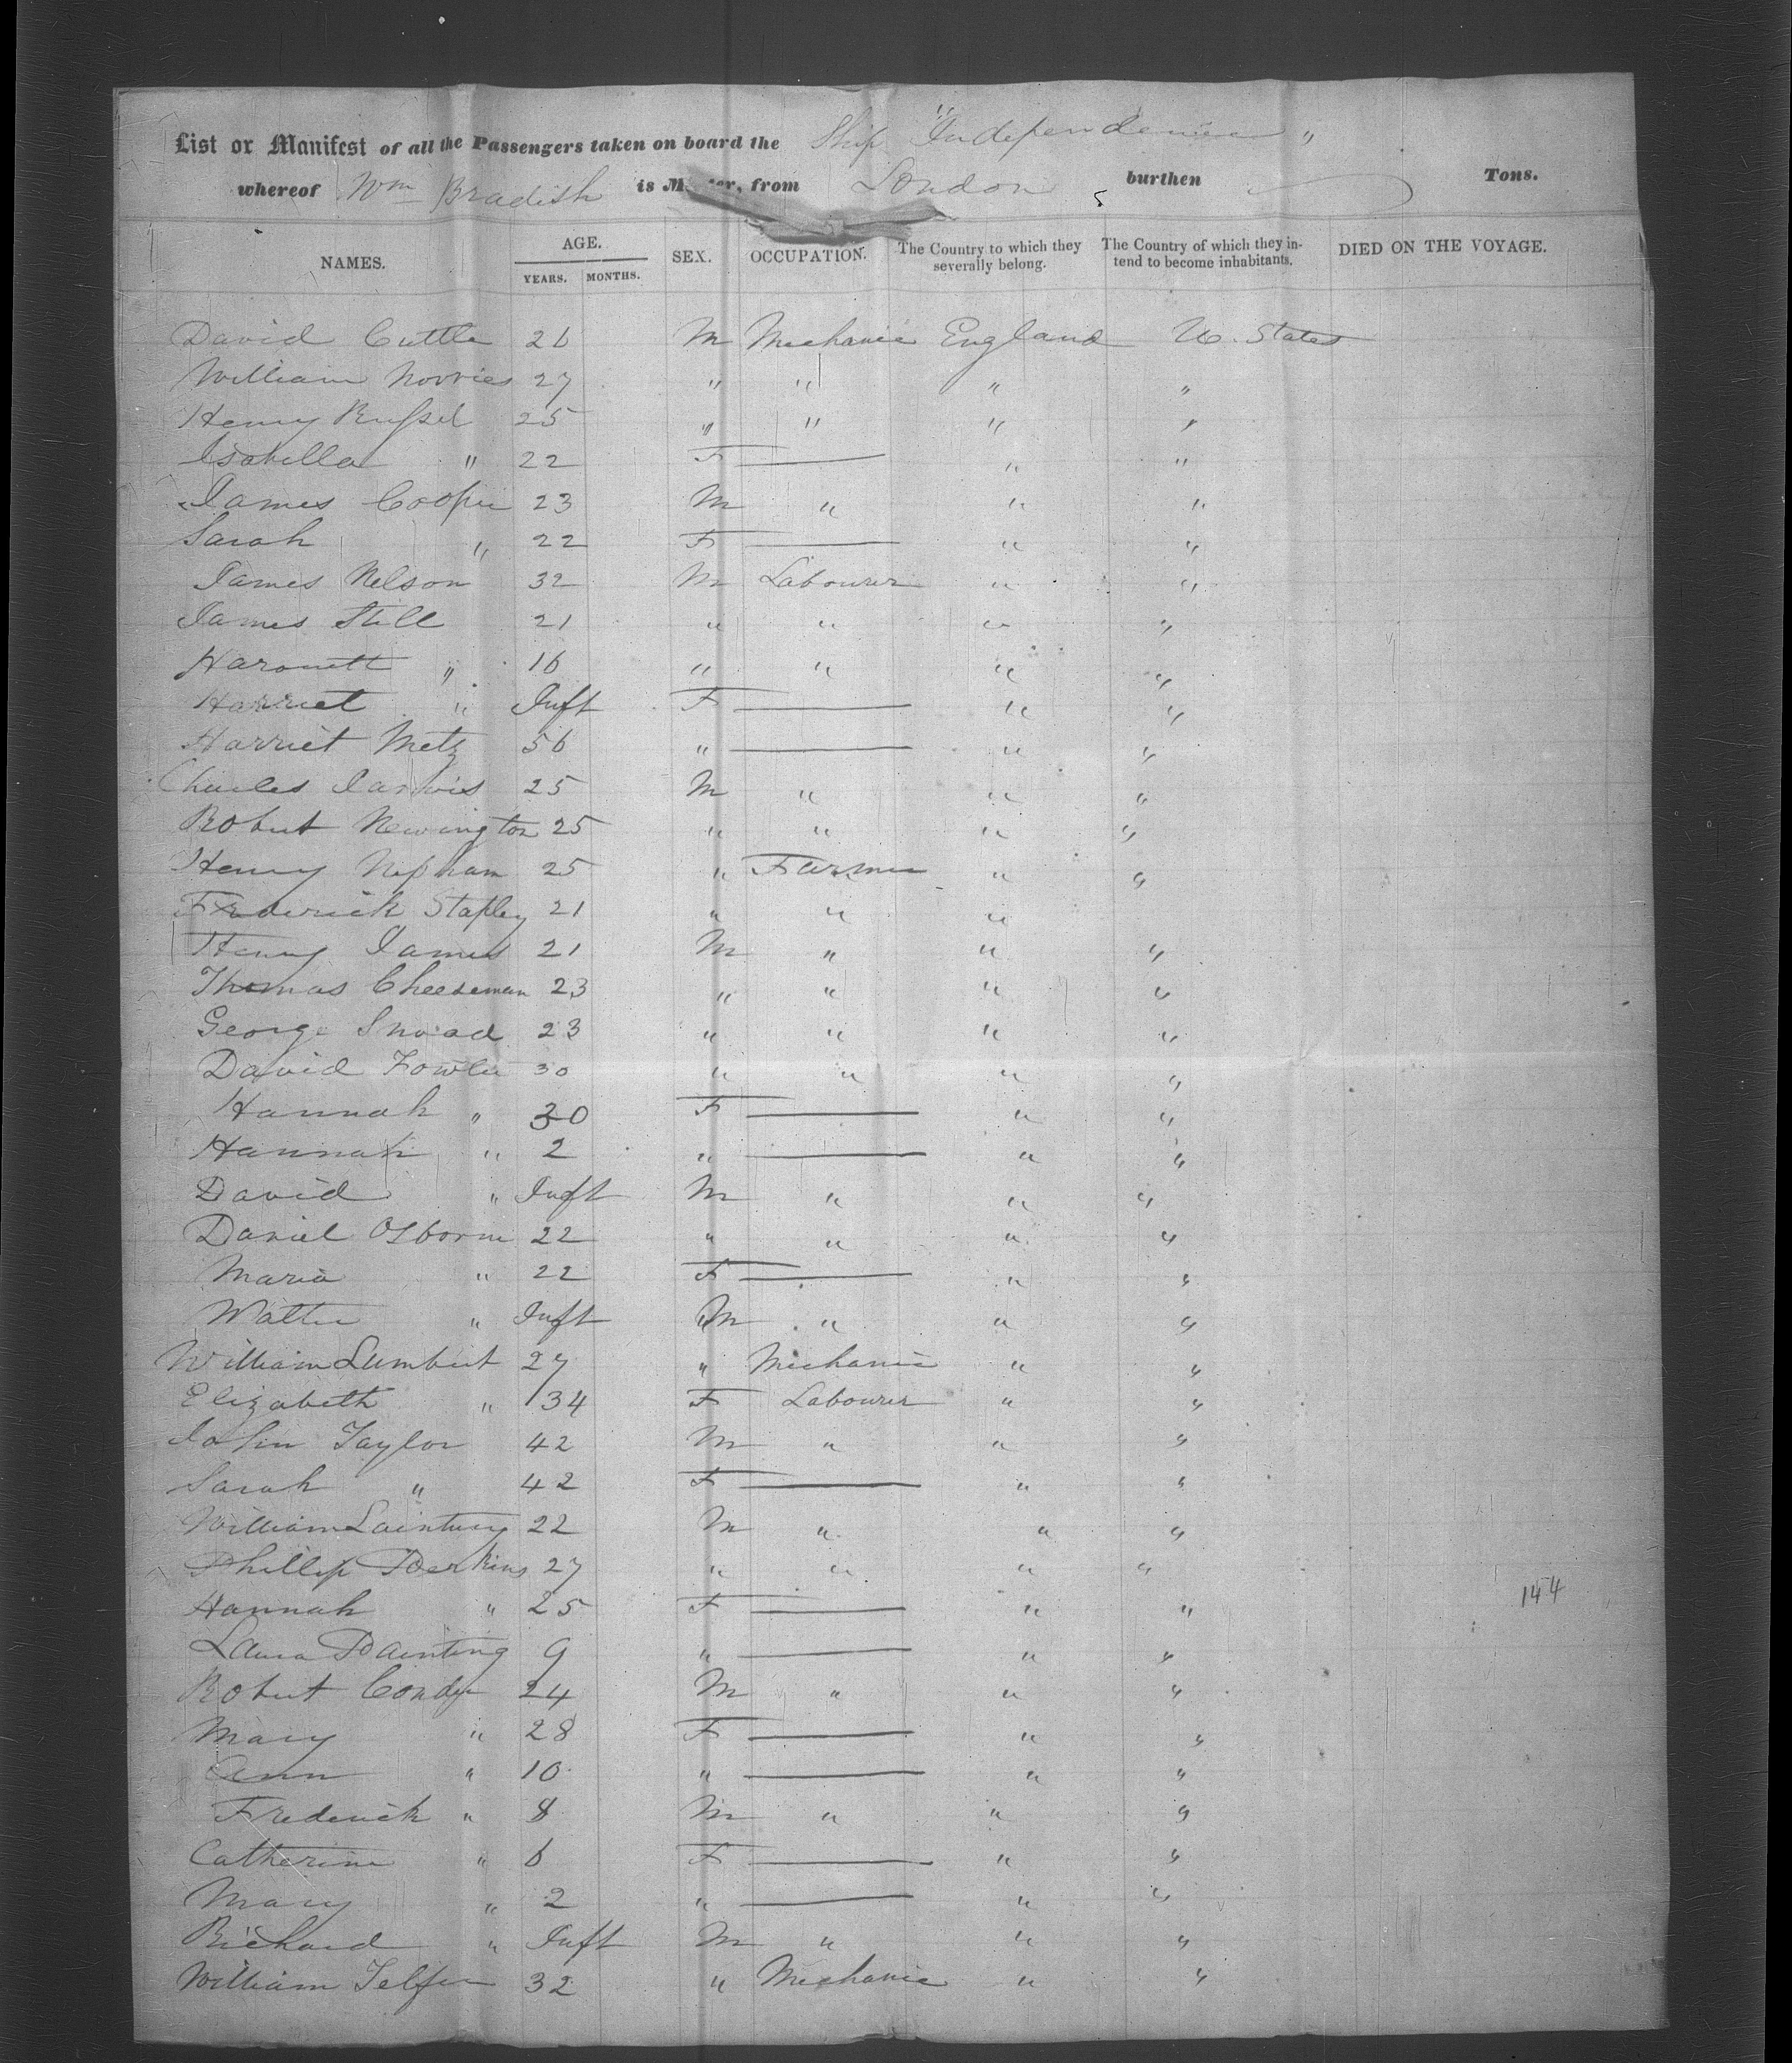 List or Manifest of all the Passengers taken on board the Ship "Independence"
whereof Wm Bradish is Master, from London burthen Tons.
NAMES. AGE. YEARS. MONTHS. SEX. OCCUPATION. The Country to which they severally belong. The Country of which they intend to become inhabitants. DIED ON THE VOYAGE.
David Cuttle 26 M Mechanic England U. States
William Norries 27 " " " "
Henry Russel 25 " " " "
Isabella " 22 F — " "
James Cooper 23 M " " "
Sarah " 22 F — " "
James Nelson 32 M Labourer " "
James Still 21 " " " "
" 16 " " " "
Harriet " Inft F — " "
Harriet Metz 56 " — " "
Charles Jarvis 25 M " " "
Robert Newington 25 " " " "
Henry 25 " Farmer " "
Frederick Stapley 21 " " "
Henry James 21 M " " "
Thomas Cheeseman 23 " " " "
George 23 " " " "
David Fowler 30 " " " "
Hannah " 30 F — " "
Hannah " 2 " — " "
David " Inft M " " "
Daniel Osborne 22 " " " "
Maria " 22 F — " "
Walter " Inft M " " "
William Lumbert 27 " Mechanic " "
Elizabeth " 34 F Labourer " "
John Taylor 42 M " " "
Sarah " 42 F — " "
William 22 M " " "
Phillip Perkins 27 " " " "
Hannah " 25 F — " "
144
Laura Painting 9 " — " "
Robert Conder 24 M " " "
Mary " 28 F — " "
Ann " 10 " — " "
Frederick " 8 M " " "
Catherine " 6 F — " "
Mary " 2 " — " "
Richard " Inft M " " "
William Telfer 32 " Mechanic " "